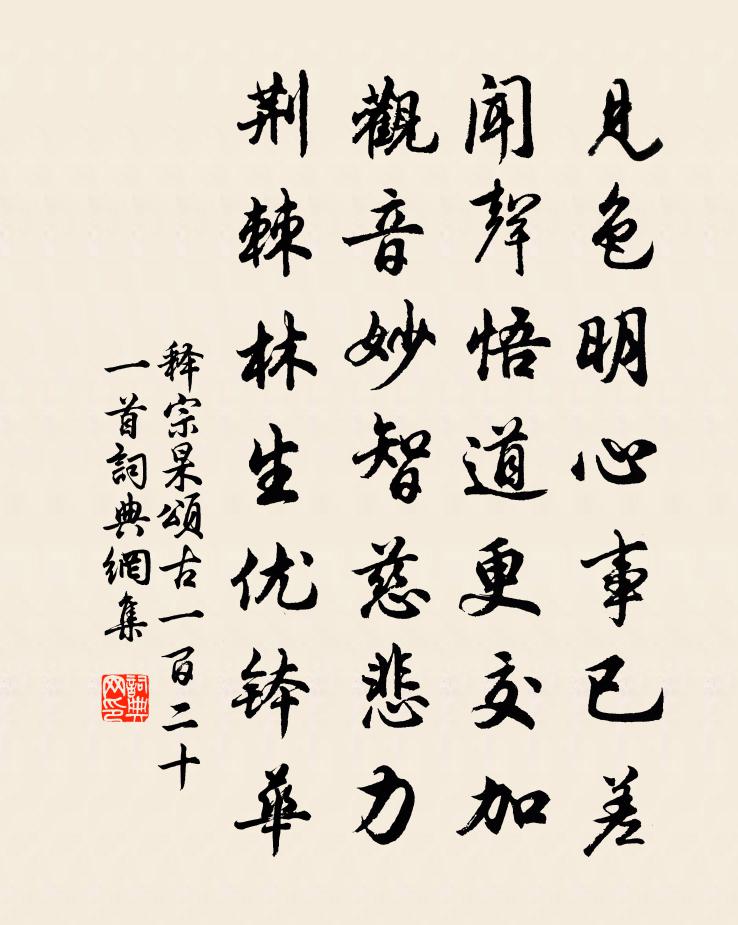 見色明心事已差
聞聲悟道更交加
觀音妙智慈悲力
荆棘林生优鉢華
释宗杲頌古一百二十
一首詞典網集
詞典网印